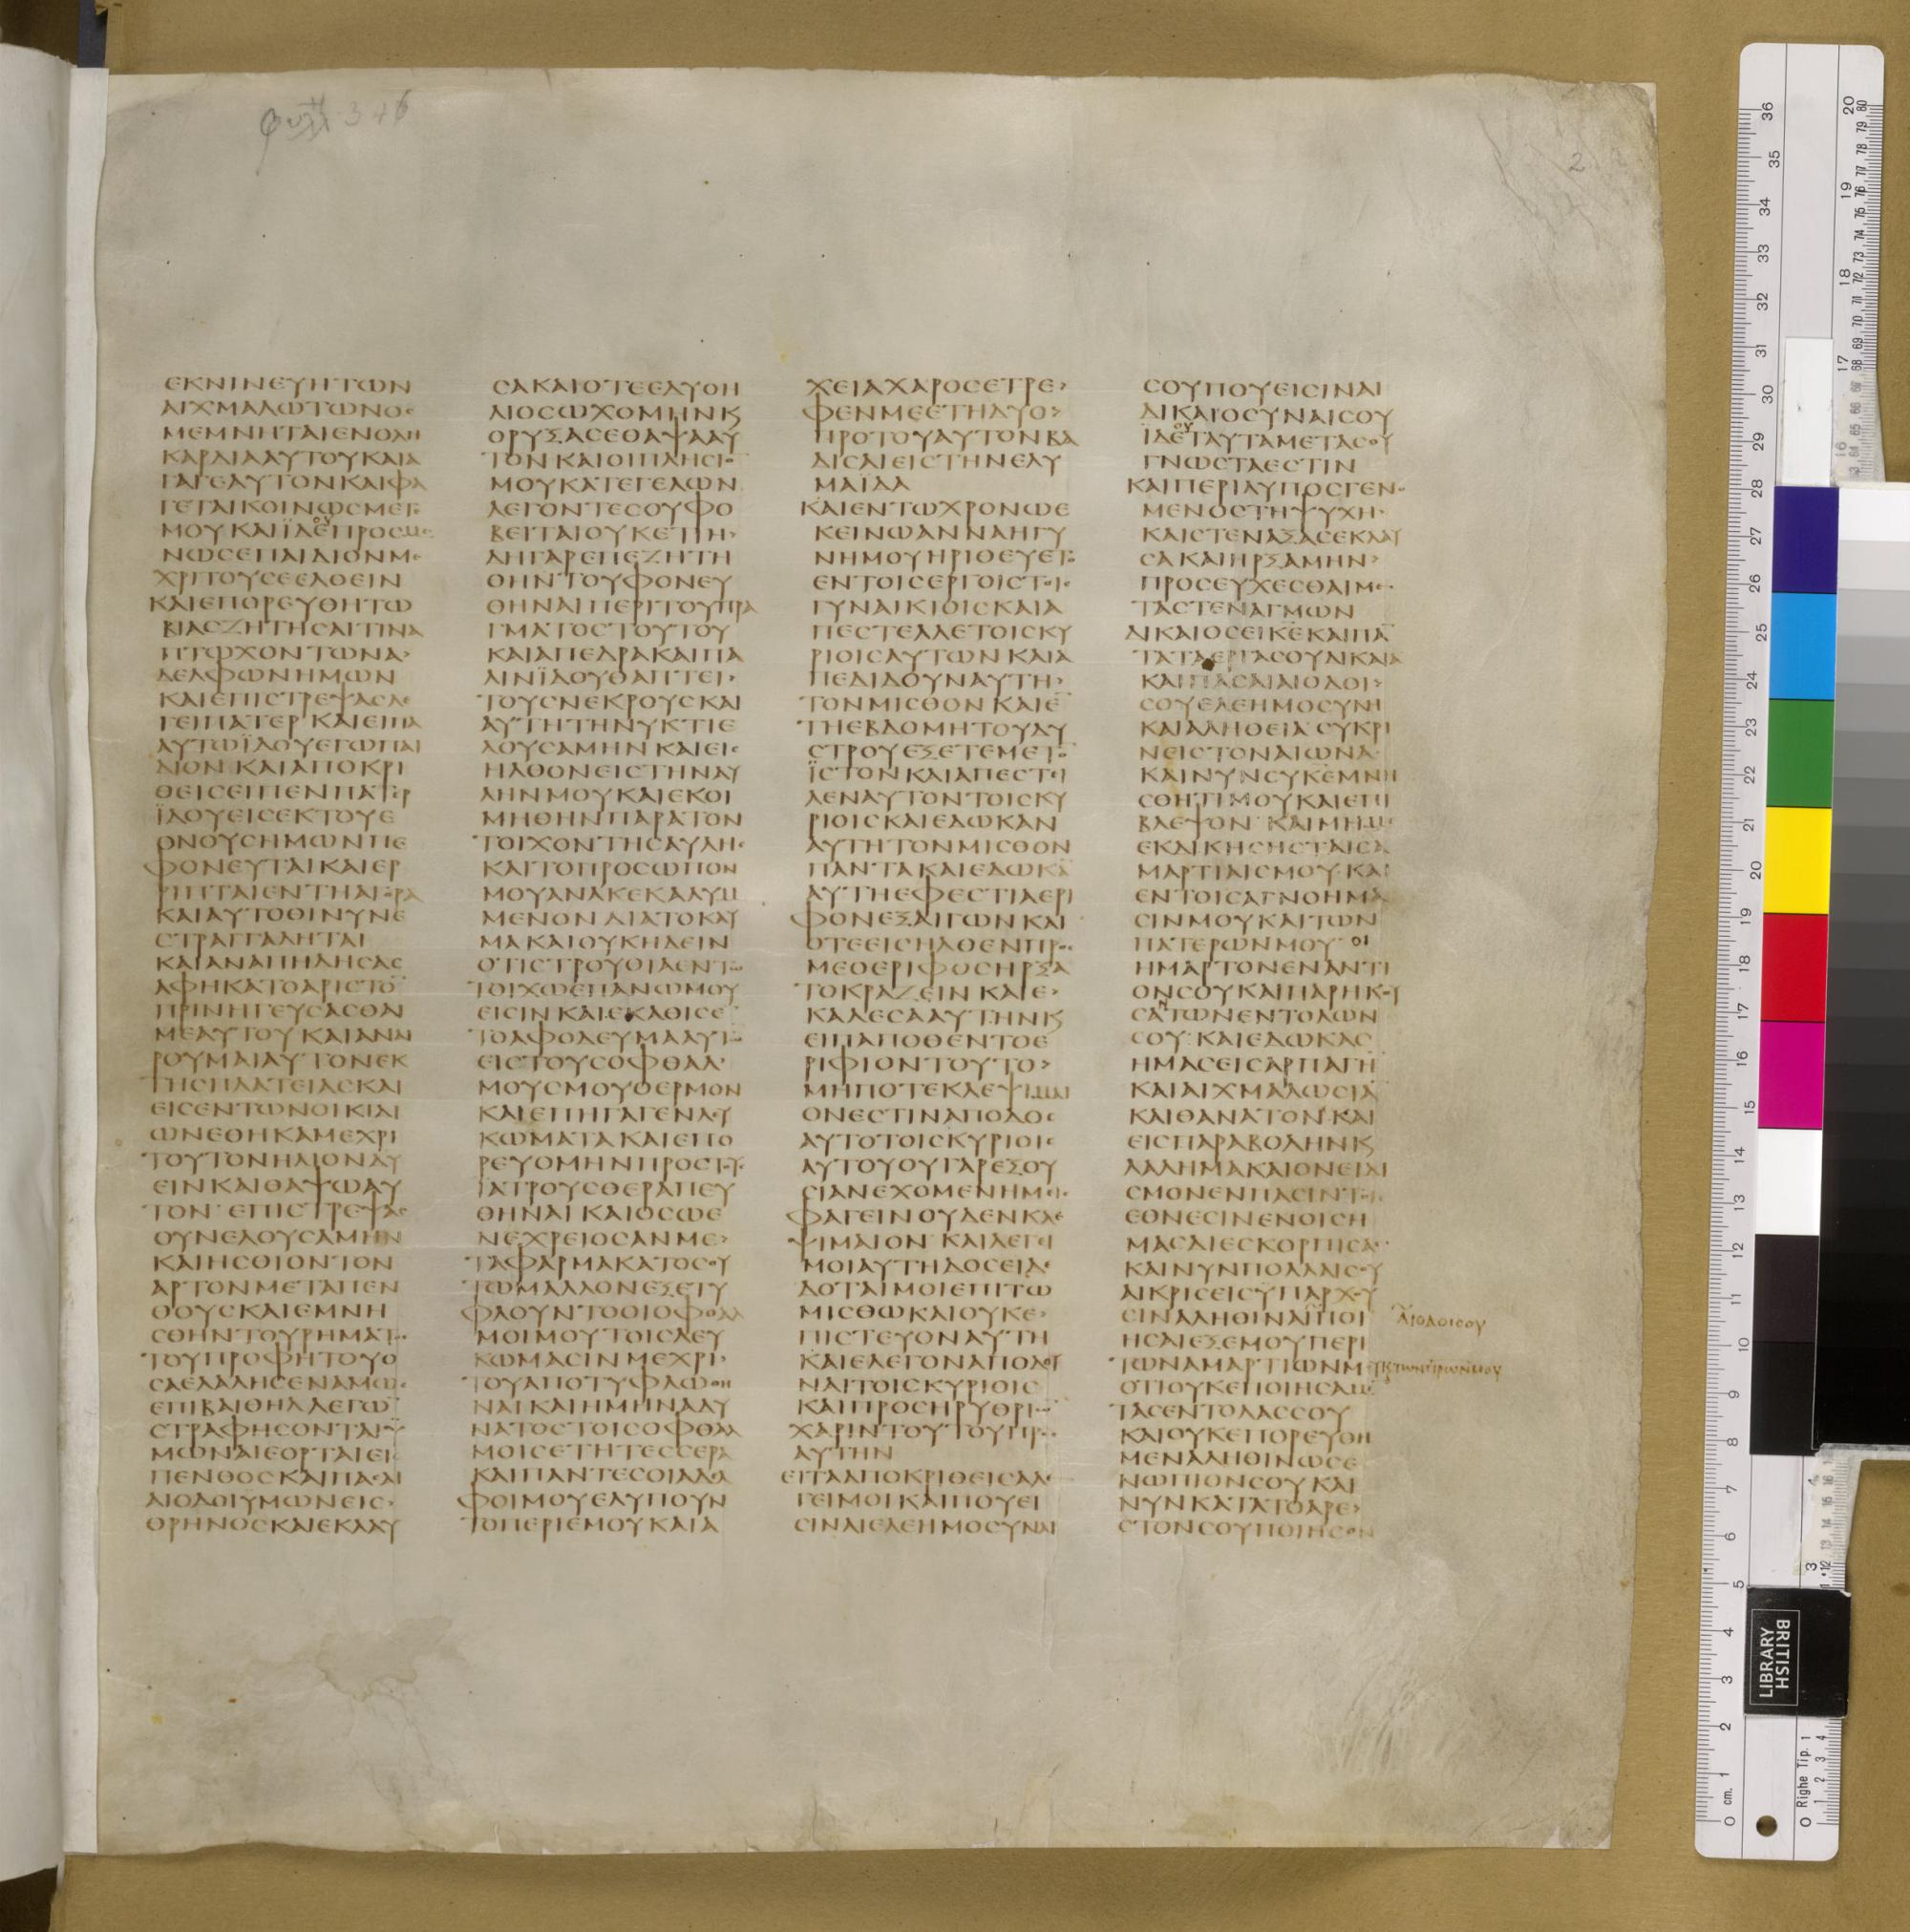 ΕΚΝΙΝΕΥΗΤΩΝ
ΑΙΧΜΑΛΩΤΩΝΟϹ
ΜΕΜΝΗΤΑΙΕΝΟΛΗ
ΚΑΡΔΙΑΑΥΤΟΥΚΑΙΑ
ΓΑΓΕΑΥΤΟΝΚΑΙΦΑ
ΓΕΤΑΙΚΟΙΝΩϹΜΕΤ
ΜΟΥΚΑΙΪΔΕΠΡΟϹΜΕ
ΝΩϹΕΠΑΙΔΙΟΝΜΕ
ΧΡΙΤΟΥϹΕΕΛΘΕΙΝ
ΚΑΙΕΠΟΡΕΥΘΗΤΩ
ΒΙΑϹΖΗΤΗϹΑΙΤΙΝΑ
ΠΤΩΧΟΝΤΩΝΑ
ΔΕΛΦΩΝΗΜΩΝ
ΚΑΙΕΠΙϹΤΡΕΨΑϹΛΕ
ΓΕΙΠΑΤΕΡΚΑΙΕΙΠΑ
ΑΥΤΩΪΔΟΥΕΓΩΠΑΙ
ΔΙΟΝΚΑΙΑΠΟΚΡΙ
ΘΕΙϹΕΙΠΕΝΠΑΤΕΡ
ΪΔΟΥΕΙϹΕΚΤΟΥΕ
ΘΝΟΥϹΗΜΩΝΠΕ
ΦΟΝΕΥΤΑΙΚΑΙΕΡ
ΡΙΠΤΑΙΕΝΤΗΑΓΟΡΑ
ΚΑΙΑΥΤΟΘΙΝΥΝΕ
ϹΤΡΑΓΓΑΛΗΤΑΙ
ΚΑΙΑΝΑΠΗΔΗϹΑϹ
ΑΦΗΚΑΤΟΑΡΙϹΤΟ
ΠΡΙΝΗΓΕΥϹΑϹΘΑΙ
ΜΕΑΥΤΟΥΚΑΙΑΝΑΙ
ΡΟΥΜΑΙΑΥΤΟΝΕΚ
ΤΗϹΠΛΑΤΕΙΑϹΚΑΙ
ΕΙϹΕΝΤΩΝΟΙΚΙΔΙ
ΩΝΕΘΗΚΑΜΕΧΡΙ
ΤΟΥΤΟΝΗΛΙΟΝΔΥ
ΕΙΝΚΑΙΘΑΨΩΑΥ
ΤΟΝΕΠΙϹΤΡΕΨΑϹ
ΟΥΝΕΛΟΥϹΑΜΗΝ
ΚΑΙΗϹΘΙΟΝΤΟΝ
ΑΡΤΟΝΜΕΤΑΠΕΝ
ΘΟΥϹΚΑΙΕΜΝΗ
ϹΘΗΝΤΟΥΡΗΜΑΤΟϹ
ΤΟΥΠΡΟΦΗΤΟΥΟ
ϹΑΕΛΑΛΗϹΕΝΑΜΩϹ
ΕΠΙΒΑΙΘΗΛΛΕΓΩ
ϹΤΡΑΦΗϹΟΝΤΑΙΫ
ΜΩΝΑΙΕΟΡΤΑΙΕΙϹ
ΠΕΝΘΟϹΚΑΙΠΑϹΑΙ
ΑΙΟΔΟΙΫΜΩΝΕΙϹ
ΘΡΗΝΟϹΚΑΙΕΚΛΑΥ
ϹΑΚΑΙΟΤΕΕΔΥΟΗ
ΛΙΟϹΩΧΟΜΗΝΚ
ΟΡΥΞΑϹΕΘΑΨΑΑΥ
ΤΟΝΚΑΙΟΙΠΛΗϹΙΟ
ΜΟΥΚΑΤΕΓΕΛΩΝ
ΛΕΓΟΝΤΕϹΟΥΦΟ
ΒΕΙΤΑΙΟΥΚΕΤΙΗ
ΔΗΓΑΡΕΠΕΖΗΤΗ
ΘΗΝΤΟΥΦΟΝΕΥ
ΘΗΝΑΙΠΕΡΙΤΟΥΠΡΑ
ΓΜΑΤΟϹΤΟΥΤΟΥ
ΚΑΙΑΠΕΔΡΑΚΑΙΠΑ
ΛΙΝΪΔΟΥΘΑΠΤΕΙ
ΤΟΥϹΝΕΚΡΟΥϹΚΑΙ
ΑΥΤΗΤΗΝΥΚΤΙΕ
ΛΟΥϹΑΜΗΝΚΑΙΕΙϹ
ΗΛΘΟΝΕΙϹΤΗΝΑΥ
ΛΗΝΜΟΥΚΑΙΕΚΟΙ
ΜΗΘΗΝΠΑΡΑΤΟΝ
ΤΟΙΧΟΝΤΗϹΑΥΛΗϹ
ΚΑΙΤΟΠΡΟϹΩΠΟΝ
ΜΟΥΑΝΑΚΕΚΑΛΥΜ
ΜΕΝΟΝΔΙΑΤΟΚΑΥ
ΜΑΚΑΙΟΥΚΗΔΕΙΝ
ΟΤΙϹΤΡΟΥΘΙΑΕΝΤΩ
ΤΟΙΧΩΕΠΑΝΩΜΟΥ
ΕΙϹΙΝΚΑΙΕΚΑΘΙϹΕ
ΤΟΑΦΟΔΕΥΜΑΑΥΤΩ
ΕΙϹΤΟΥϹΟΦΘΑΛ
ΜΟΥϹΜΟΥΘΕΡΜΟΝ
ΚΑΙΕΠΗΓΑΓΕΝΛΕΥ
ΚΩΜΑΤΑΚΑΙΕΠΟ
ΡΕΥΟΜΗΝΠΡΟϹΤΟΥϹ
ΙΑΤΡΟΥϹΘΕΡΑΠΕΥ
ΘΗΝΑΙΚΑΙΟϹΩΕ
ΝΕΧΡΕΙΟϹΑΝΜΕ
ΤΑΦΑΡΜΑΚΑΤΟϹΟΥ
ΤΩΜΑΛΛΟΝΕΞΕΤΥ
ΦΛΟΥΝΤΟΟΙΟΦΘΑΛ
ΜΟΙΜΟΥΤΟΙϹΛΕΥ
ΚΩΜΑϹΙΝΜΕΧΡΙ
ΤΟΥΑΠΟΤΥΦΛΩΘΗ
ΝΑΙΚΑΙΗΜΗΝΑΔΥ
ΝΑΤΟϹΤΟΙϹΟΦΘΑΛ
ΜΟΙϹΕΤΗΤΕϹϹΕΡΑ
ΚΑΙΠΑΝΤΕϹΟΙΑΔΕΛ
ΦΟΙΜΟΥΕΛΥΠΟΥΝ
ΤΟΠΕΡΙΕΜΟΥΚΑΙΑ
ΧΕΙΑΧΑΡΟϹΕΤΡΕ
ΦΕΝΜΕΕΤΗΔΥΟ
ΠΡΟΤΟΥΑΥΤΟΝΒΑ
ΔΙϹΑΙΕΙϹΤΗΝΕΛΥ
ΜΑΪΔΑ
ΚΑΙΕΝΤΩΧΡΟΝΩΕ
ΚΕΙΝΩΑΝΝΑΗΓΥ
ΝΗΜΟΥΗΡΙΘΕΥΕΤΟ
ΕΝΤΟΙϹΕΡΓΟΙϹΤΟΙϹ
ΓΥΝΑΙΚΙΟΙϹΚΑΙΑ
ΠΕϹΤΕΛΛΕΤΟΙϹΚΥ
ΡΙΟΙϹΑΥΤΩΝΚΑΙΑ
ΠΕΔΙΔΟΥΝΑΥΤΗ
ΤΟΝΜΙϹΘΟΝΚΑΙΕ
ΤΗΕΒΔΟΜΗΤΟΥΔΥ
ϹΤΡΟΥΕΞΕΤΕΜΕΤΟ
ΪϹΤΟΝΚΑΙΑΠΕϹΤΙ
ΛΕΝΑΥΤΟΝΤΟΙϹΚΥ
ΡΙΟΙϹΚΑΙΕΔΩΚΑΝ
ΑΥΤΗΤΟΝΜΙϹΘΟΝ
ΠΑΝΤΑΚΑΙΕΔΩΚΑ
ΑΥΤΗΕΦΕϹΤΙΑΕΡΙ
ΦΟΝΕΞΑΙΓΩΝΚΑΙ
ΟΤΕΕΙϹΗΛΘΕΝΠΡΟϹ
ΜΕΟΕΡΙΦΟϹΗΡΞΑ
ΤΟΚΡΑΖΕΙΝΚΑΙΕ
ΚΑΛΕϹΑΑΥΤΗΝΚ
ΕΙΠΑΠΟΘΕΝΤΟΕ
ΡΙΦΙΟΝΤΟΥΤΟ
ΜΗΠΟΤΕΚΛΕΨΙΜΑΙ
ΟΝΕϹΤΙΝΑΠΟΔΟϹ
ΑΥΤΟΤΟΙϹΚΥΡΙΟΙϹ
ΑΥΤΟΥΟΥΓΑΡΕΞΟΥ
ϹΙΑΝΕΧΟΜΕΝΗΜΙϹ
ΦΑΓΕΙΝΟΥΔΕΝΚΛΕ
ΨΙΜΑΙΟΝΚΑΙΛΕΓΕΙ
ΜΟΙΑΥΤΗΔΟϹΕΙΔΕ
ΔΟΤΑΙΜΟΙΕΠΙΤΩ
ΜΙϹΘΩΚΑΙΟΥΚΕ
ΠΙϹΤΕΥΟΝΑΥΤΗ
ΚΑΙΕΛΕΓΟΝΑΠΟΔΟΥ
ΝΑΙΤΟΙϹΚΥΡΙΟΙϹ
ΚΑΙΠΡΟϹΗΡΥΘΡΙΩ
ΧΑΡΙΝΤΟΥΤΟΥΠΡΟϹ
ΑΥΤΗΝ
ΕΙΤΑΑΠΟΚΡΙΘΕΙϹΑΛΕ
ΓΕΙΜΟΙΚΑΙΠΟΥΕΙ
ϹΙΝΑΙΕΛΕΗΜΟϹΥΝΑΙ
ϹΟΥΠΟΥΕΙϹΙΝΑΙ
ΔΙΚΑΙΟϹΥΝΑΙϹΟΥ
ΪΔΕΤΑΥΤΑΜΕΤΑϹΟΥ
ΓΝΩϹΤΑΕϹΤΙΝ
ΚΑΙΠΕΡΙΛΥΠΟϹΓΕΝΟ
ΜΕΝΟϹΤΗΨΥΧΗ
ΚΑΙϹΤΕΝΑΞΑϹΕΚΛΑΥ
ϹΑΚΑΙΗΡΞΑΜΗΝ
ΠΡΟϹΕΥΧΕϹΘΑΙΜΕ
ΤΑϹΤΕΝΑΓΜΩΝ
ΔΙΚΑΙΟϹΕΙΚΕΚΑΙΠΑ
ΤΑΤΑΕΡΓΑϹΟΥΔΙΚΑΙΑ
ΚΑΙΠΑϹΑΙΑΙΟΔΟΙ
ϹΟΥΕΛΕΗΜΟϹΥΝΗ
ΚΑΙΑΛΗΘΕΙΑϹΥΚΡΙ
ΝΕΙϹΤΟΝΑΙΩΝΑ
ΚΑΙΝΥΝϹΥΚΕΜΝΗ
ϹΘΗΤΙΜΟΥΚΑΙΕΠΙ
ΒΛΕΨΟΝΚΑΙΜΗΜΕ
ΕΚΔΙΚΗϹΗϹΤΑΙϹΑ
ΜΑΡΤΙΑΙϹΜΟΥΚΑΙ
ΕΝΤΟΙϹΑΓΝΟΗΜΑ
ϹΙΝΜΟΥΚΑΙΤΩΝ
ΠΑΤΕΡΩΝΜΟΥΟΙ
ΗΜΑΡΤΟΝΕΝΑΝΤΙ
ΟΝϹΟΥΚΑΙΠΑΡΗΚΟΥ
ϹΑΤΩΝΕΝΤΟΛΩΝ
ϹΟΥΚΑΙΕΔΩΚΑϹ
ΗΜΑϹΕΙϹΑΡΠΑΓΗ
ΚΑΙΑΙΧΜΑΛΩϹΙΑ
ΚΑΙΘΑΝΑΤΟΝΚΑΙ
ΕΙϹΠΑΡΑΒΟΛΗΝΚ
ΛΑΛΗΜΑΚΑΙΟΝΕΙΔΙ
ϹΜΟΝΕΝΠΑϹΙΝΤΟΙϹ
ΕΘΝΕϹΙΝΕΝΟΙϹΗ
ΜΑϹΔΙΕϹΚΟΡΠΙϹΑϹ
ΚΑΙΝΥΝΠΟΛΛΑΙϹΟΥ
ΑΙΚΡΙϹΕΙϹΥΠΑΡΧΟΥ
ϹΙΝΑΛΗΘΙΝΑΙΠΟΙ
ΗϹΑΙΕΞΕΜΟΥΠΕΡΙ
ΤΩΝΑΜΑΡΤΙΩΝΜΟΥ
ΟΤΙΟΥΚΕΠΟΙΗϹΑΜΕ
ΤΑϹΕΝΤΟΛΑϹϹΟΥ
ΚΑΙΟΥΚΕΠΟΡΕΥΘΗ
ΜΕΝΑΛΗΘΙΝΩϹΕ
ΝΩΠΙΟΝϹΟΥΚΑΙ
ΝΥΝΚΑΤΑΤΟΑΡΕ
ϹΤΟΝϹΟΥΠΟΙΗϹΟΝ
ΑΙΟΔΟΙϹΟΥ